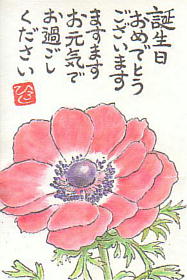 誕生日
おめでとう
ございます
ますます
お元気で
お過ごし
ください